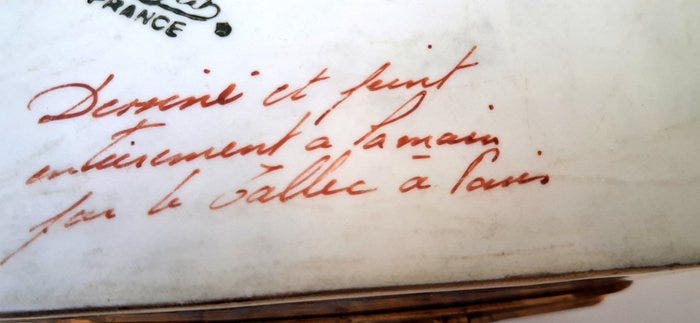 FRANCE
Dessiné et peint
entièrement a la main
par le Tallec à Paris